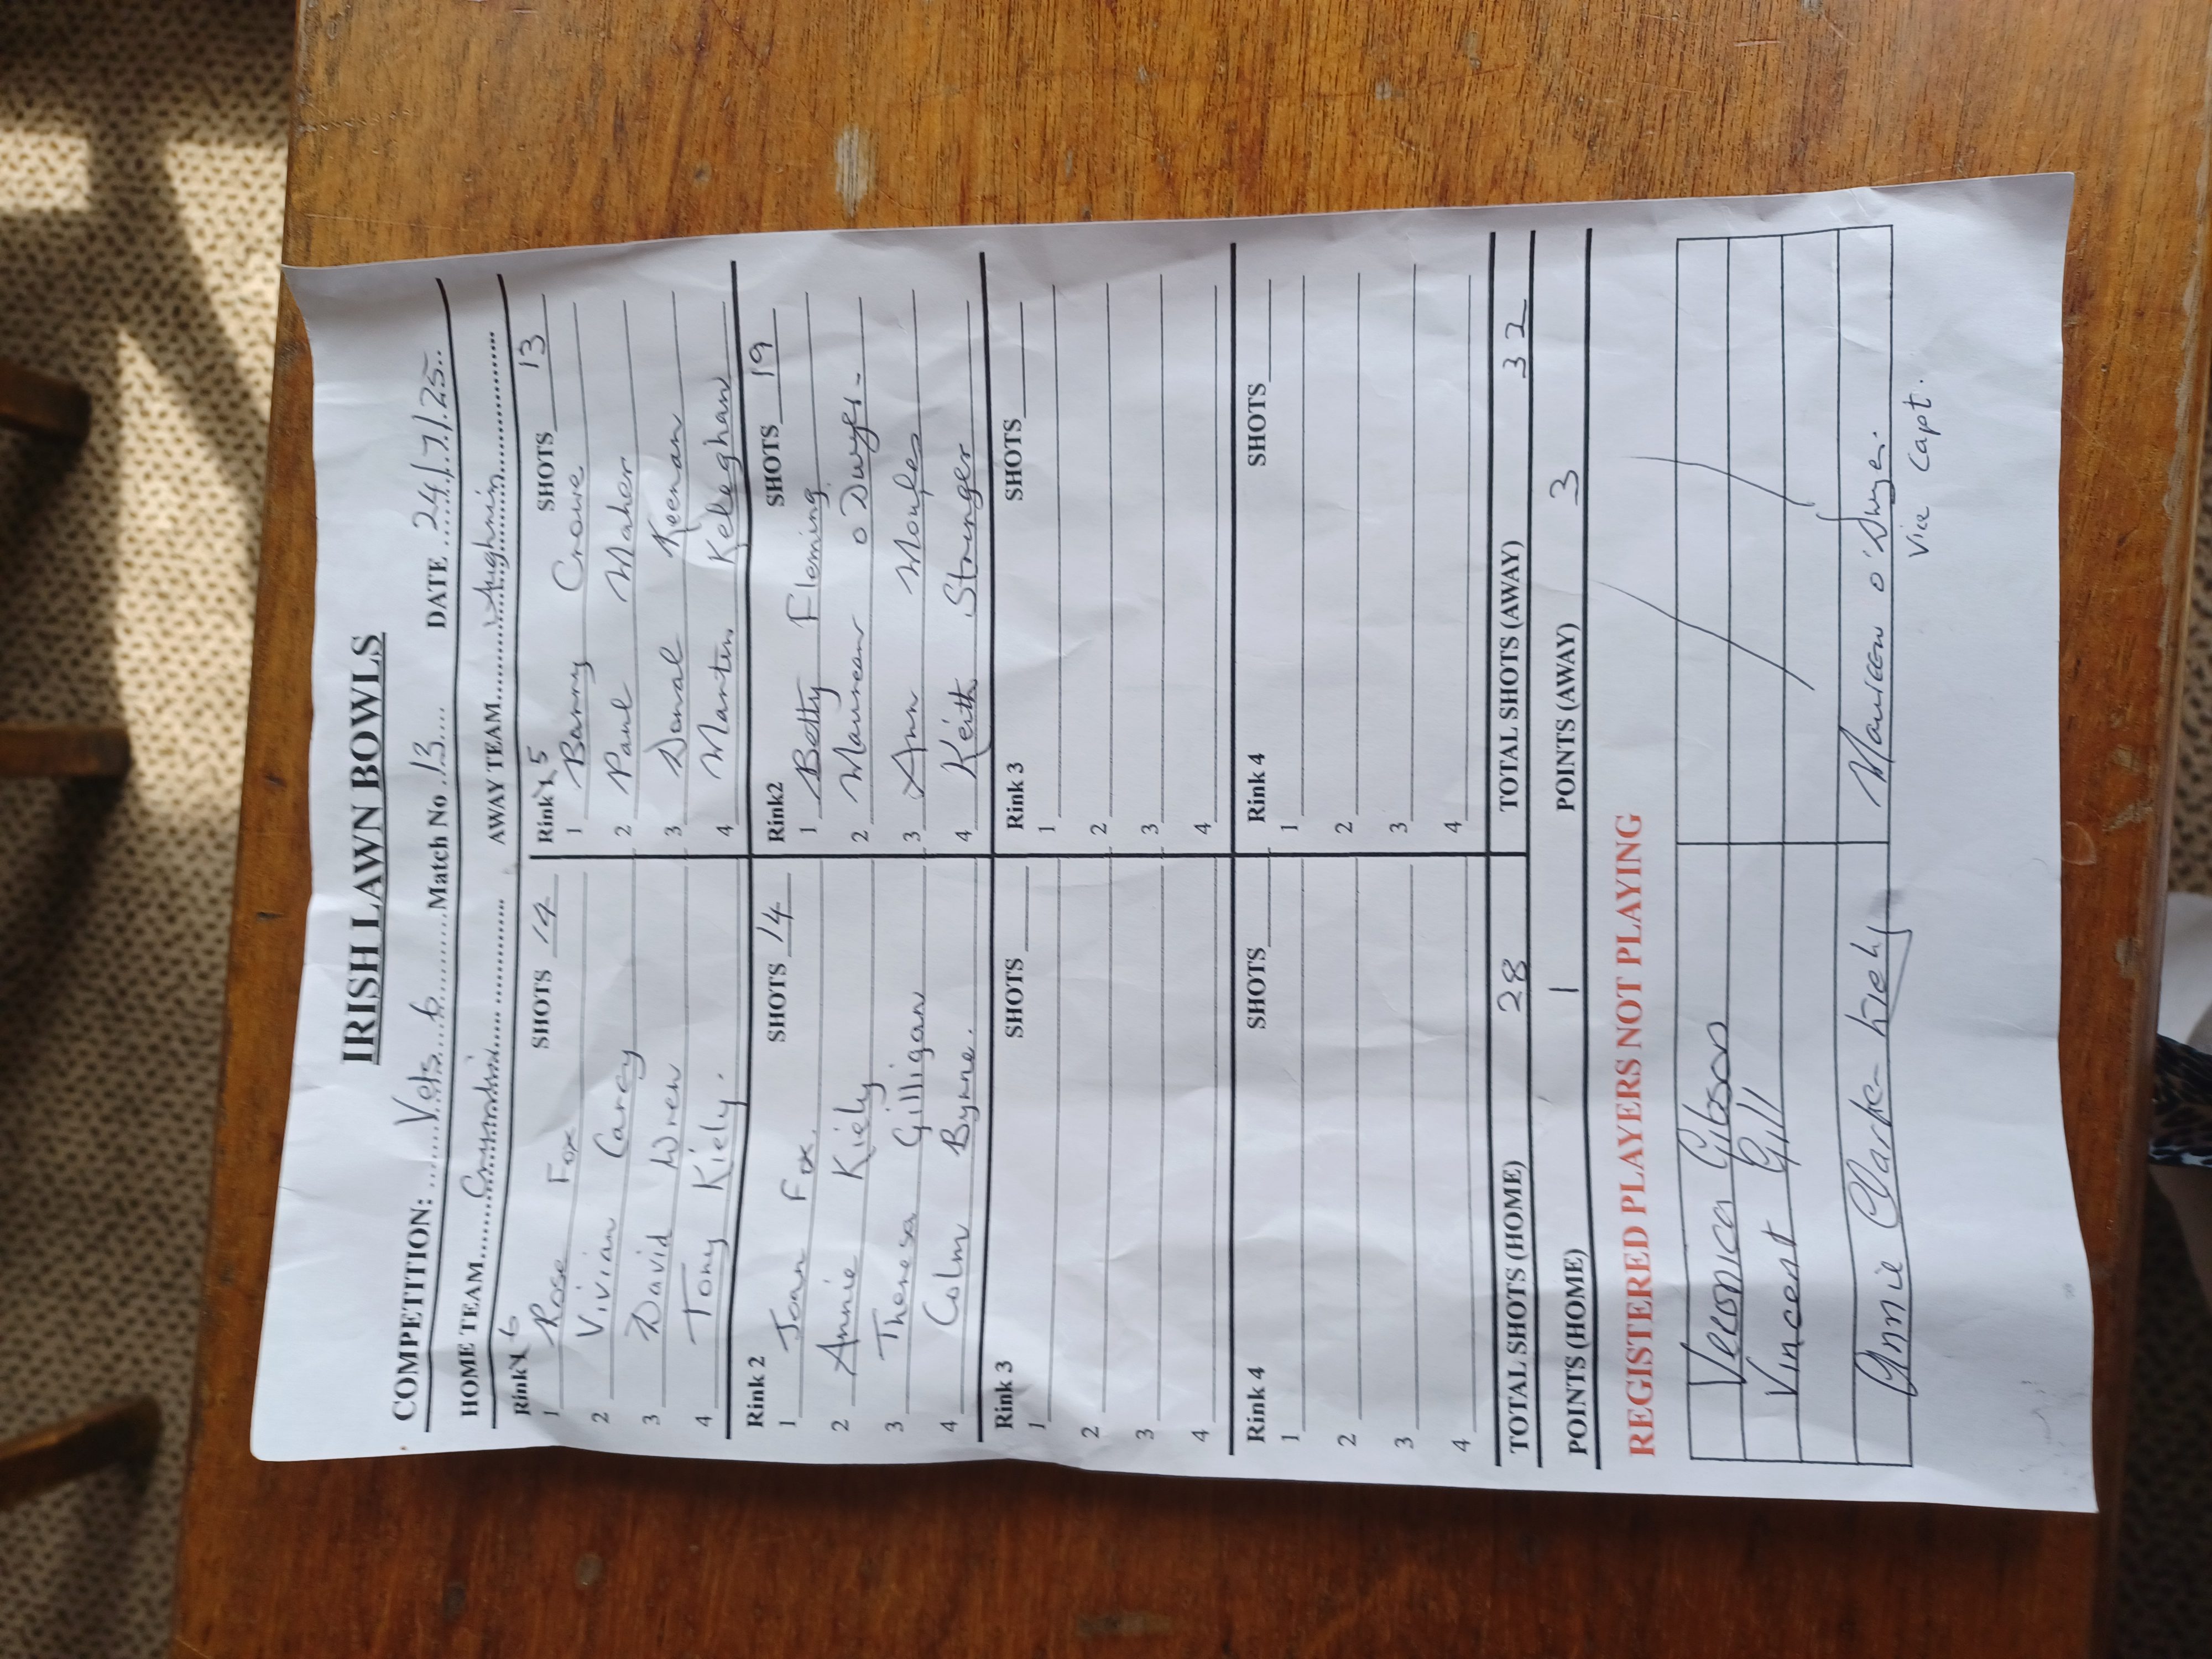 IRISH LAWN BOWLS
COMPETITION: Vets 6 Match No 13 DATE 24/7/25
HOME TEAM AWAY TEAM Aughrim
Rink 6 SHOTS 14 Rink 5 SHOTS 13
1 Rose Fox 1 Barry Crowe
2 Vivian Carey 2 Paul Maher
3 David Wren 3 Donal Keenan
4 Tony Kiely. 4 Martin Keleghan
Rink 2 SHOTS 14 Rink2 SHOTS 19
1 Joan Fox. 1 Betty Fleming
2 Annie Kiely 2 Maureen O Dwyer.
3 Theresa Gilligan 3 Ann
4 Colm Byrne. 4 Keith Stringer
Rink 3 SHOTS Rink 3 SHOTS
1 1
2 2
3 3
4 4
Rink 4 SHOTS Rink 4 SHOTS
1 1
2 2
3 3
4 4
TOTAL SHOTS (HOME) 28 TOTAL SHOTS (AWAY) 32
POINTS (HOME) 1 POINTS (AWAY) 3
REGISTERED PLAYERS NOT PLAYING
Veronica Gibson
Vincent Gill
Annie Clarke Kiely Maureen O'Dwyer.
Vice Capt.